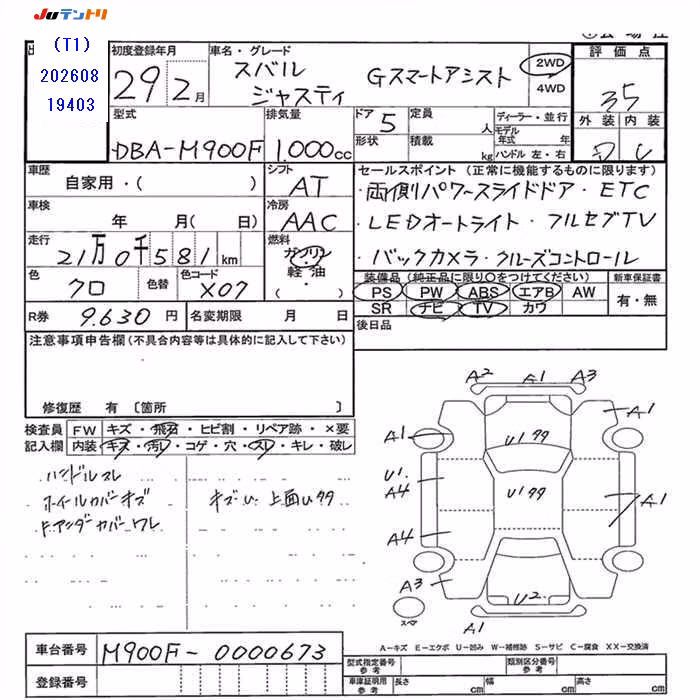 JUテントリ
(T1)
202608
19403
初度登録年月
29 2月
車名・グレード
スバル
ジャスティ
Gスマートアシスト
2WD
4WD
評価点
3.5
外装 内装
D C
型式
DBA-M900F
排気量
1.000cc
ドア 5
形状
定員
人
積載
kg
ディーラー・並行
モデル年式 年
ハンドル 左・右
車歴
自家用・( )
シフト
AT
セールスポイント (正常に機能するものに限ります)
両側パワースライドドア・ETC
・LEDオートライト・フルセグTV
・バックカメラ・クルーズコントロール
車検
年 月( 日)
冷房
AAC
走行
21万0千581km
燃料
ガソリン
軽油
・( )
色
クロ
色替
色コード
X07
装備品 (純正品に限り○をつけてください)
PS PW ABS エアB AW
SR ナビ TV カワ
新車保証書
有・無
R券
9.630円
名変期限 月 日
後日品
注意事項申告欄(不具合内容等は具体的に記入して下さい)
修復歴 有 〔箇所 〕
検査員 FW キズ・飛石・ヒビ割・リペア跡・×要
記入欄 内装 キズ・汚レ・コゲ・穴・スレ・キレ・破レ
ハンドルスレ
ホイールカバーキズ
F.アンダーカバーワレ
キズU. 上面Uタタ
A2 A1 A3
A1
A1
U1タタ
U1.
A4
U1タタ
A1
A4
A3
U2.
A1
スペア
A-キズ E-エクボ U-凹み W-補修跡 S-サビ C-腐食 XX-交換済
車台番号
M900F-0000673
登録番号
型式指定番号
参考
類別区分番号
参考
車庫証明用
参考
長さ cm
幅 cm
高さ cm